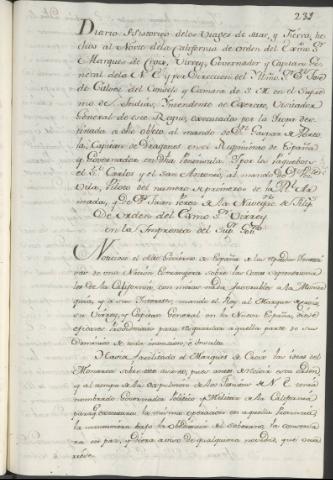 232
Diario Historico de los Viages de Mar, y Tierra, he-
chos al Norte de la California de orden del Exmo Sr
Marques de Croix, Virrey, Governador y Capitan Ge-
neral de la N. E. y por Direccion del Yllmo Sr Dn Josef
de Galvez del Consejo y Camara de S. M. en el Supre-
mo de Indias, Yntendente de Exercito, Visitador
General de este Reyno, executados por la tropa des-
tinada a dho objeto al mando de Dn Gaspar de Porto-
la, Capitan de Dragones en el Regimiento de España
y Governador en dha Peninsula. Y por los Paquebots
el Sn Carlos y el San Antonio, al mando de Dn Vicente
Vila, Piloto del numero de primeros de la Rl Ar-
mada, y de Dn Juan Perez de la Navegn de Filips
De orden del Exmo Sr Virrey
en la Imprenta del Supr Govno
Noticioso el
de una Nacion Extrangera sobre las Costas Septentriona-
les de la California, con miras nada favorables a la Monar-
quia, y a sus Intereses, mando el Rey al Marques de Croix
su Virrey, y Capitan General en la Nueva España, diese
eficaces providencias para resguardar aquella parte de sus
Dominios de toda invasion, e insulto.
Havia facilitado el Marques de Croix las ideas del
Monarca sobre este asunto, pues antes de recivir esta orden
y al tiempo de la expulsion de los
nombrado Governador Politico y Militar de la California
para executar la misma operacion en aquella Provincia